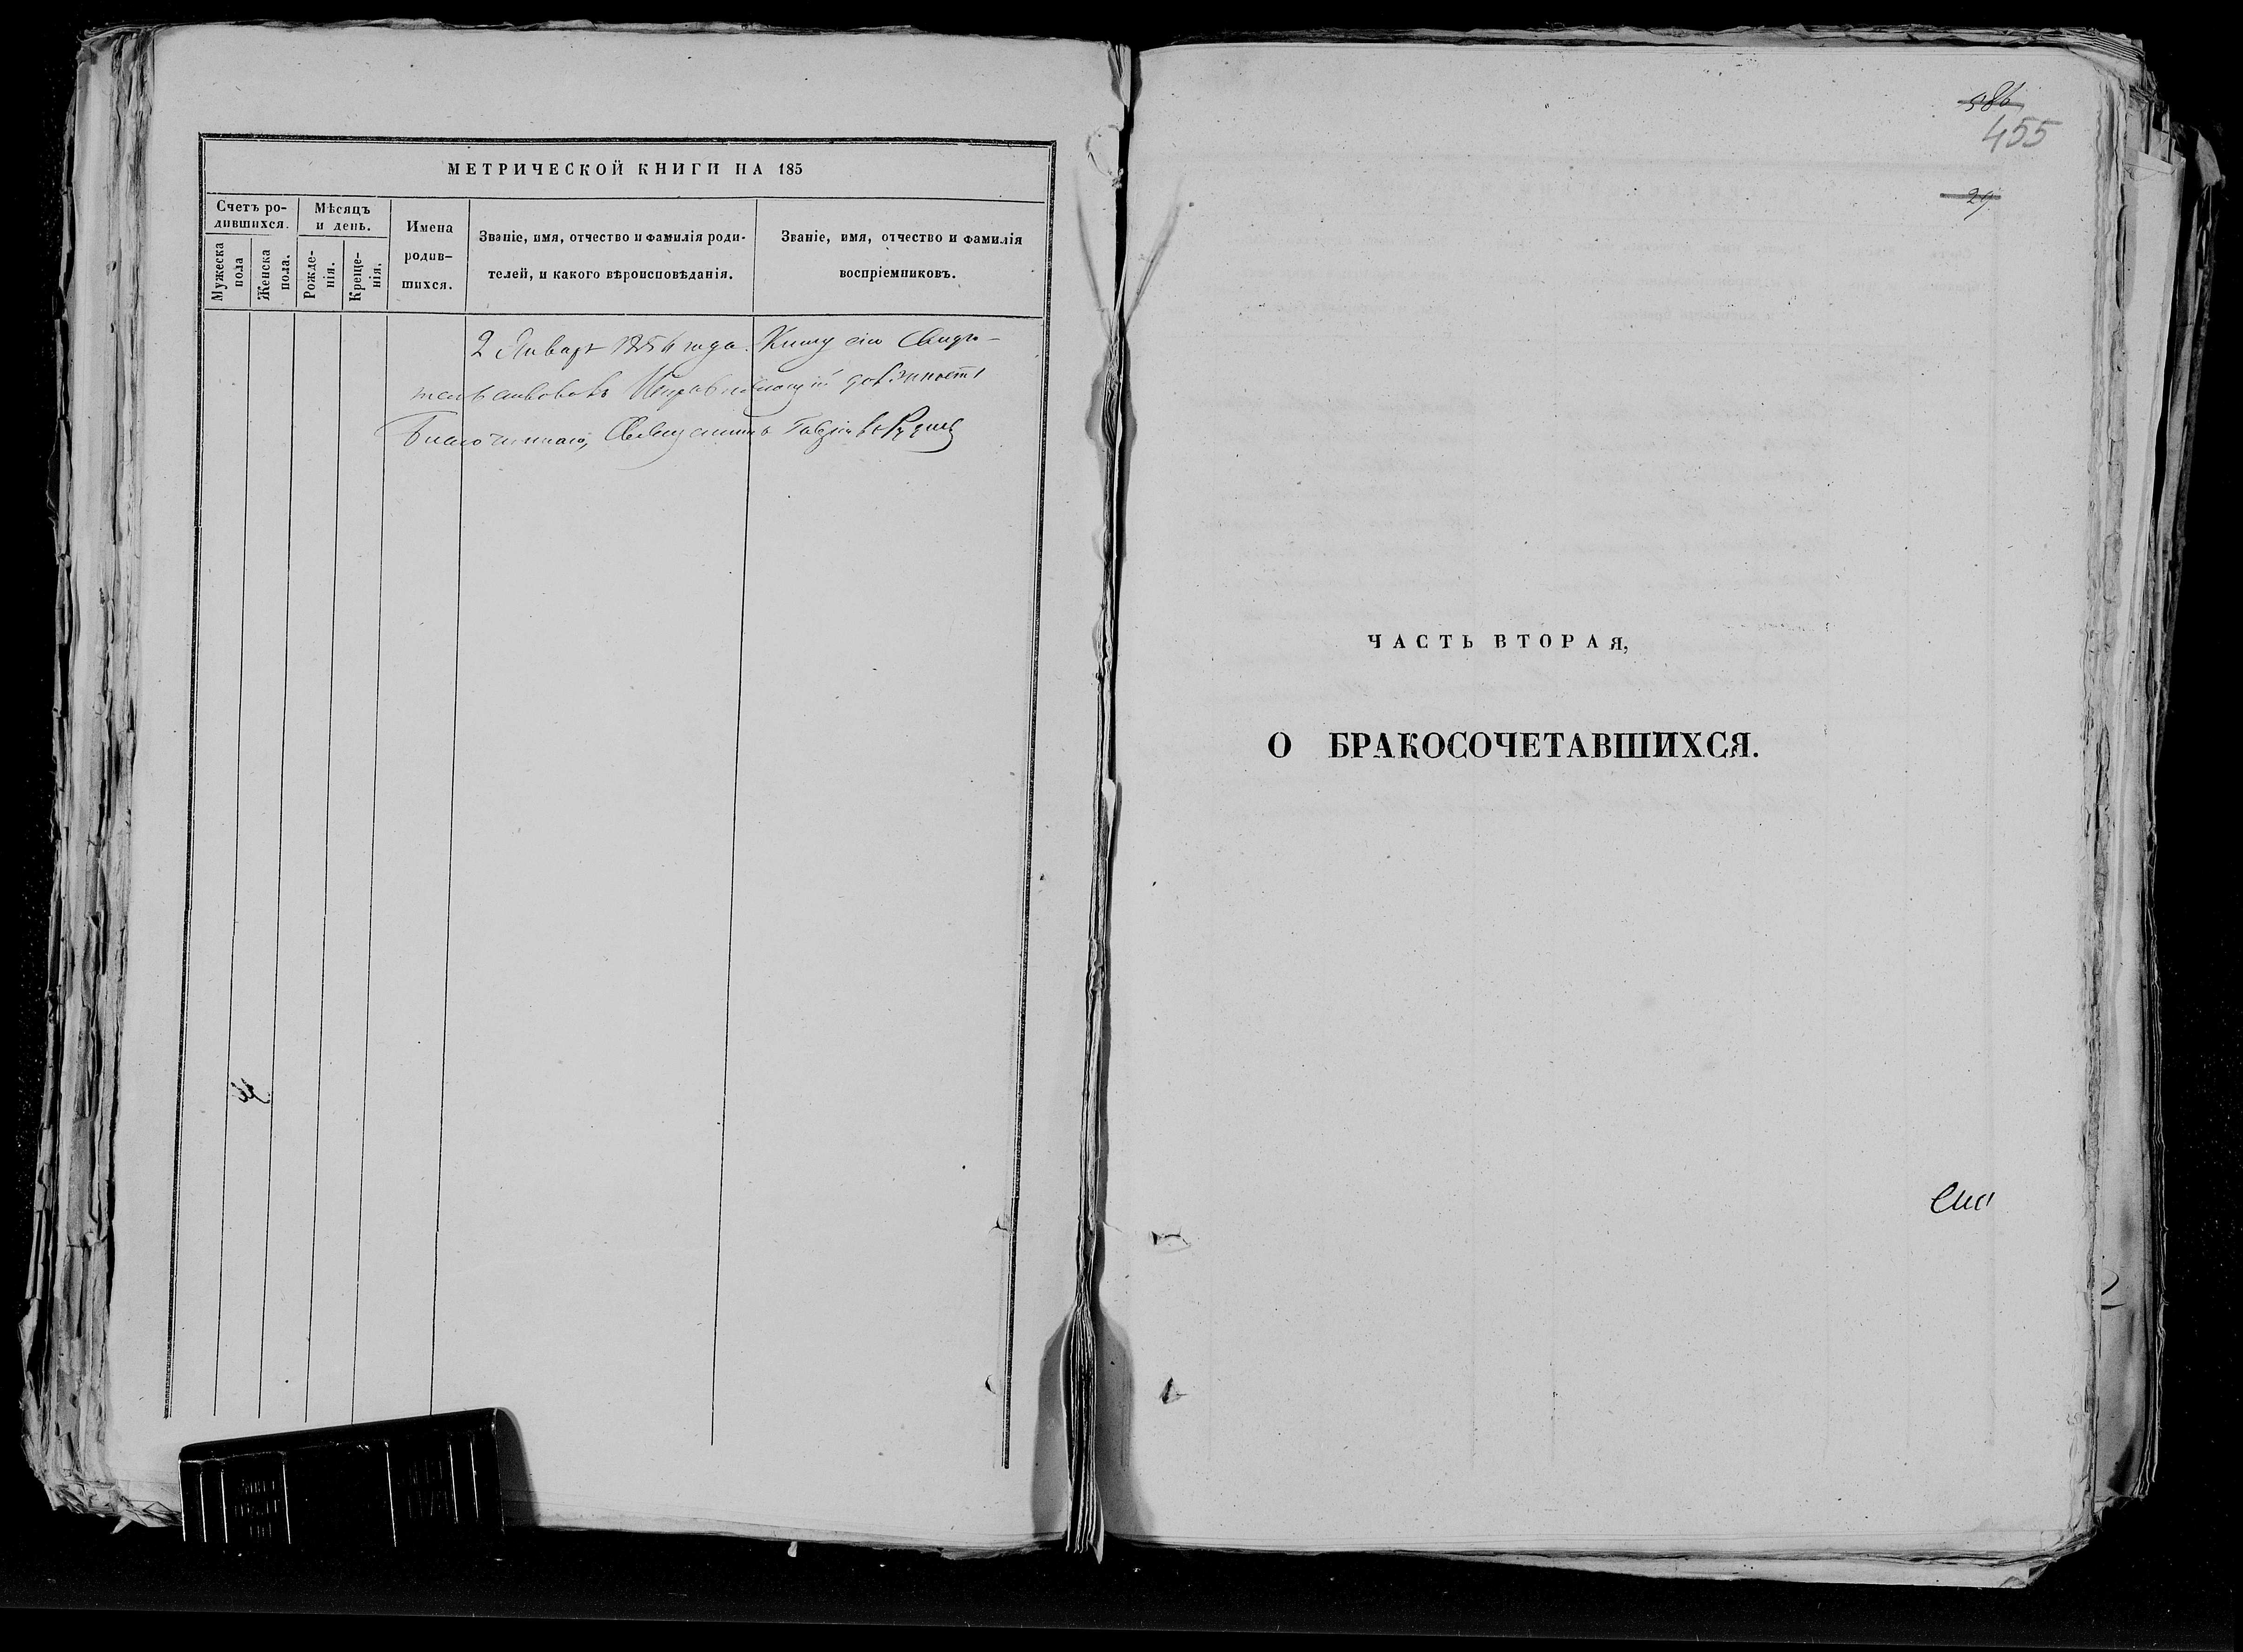 МЕТРИЧЕСКОЙ КНИГИ НА 185
Счетъ ро-
дившихся.
Мѣсяцъ
и день.
Мужеска
пола
Женска
пола.
Рожде-
нія.
Креще-
нія.
Имена
родив-
шихся.
Званіе, имя, отчество и фамилія роди-
телей, и какого вѣроисповѣданія.
Званіе, имя, отчество и фамилія
воспріемниковъ.
2 Январ 1854 года. Книгу сію Свидѣ-
тельствовалъ Исправляющій должность
Благочиннаго, Священникъ Гавріилъ Руднев
586
455
29
ЧАСТЬ ВТОРАЯ,
О БРАКОСОЧЕТАВШИХСЯ.